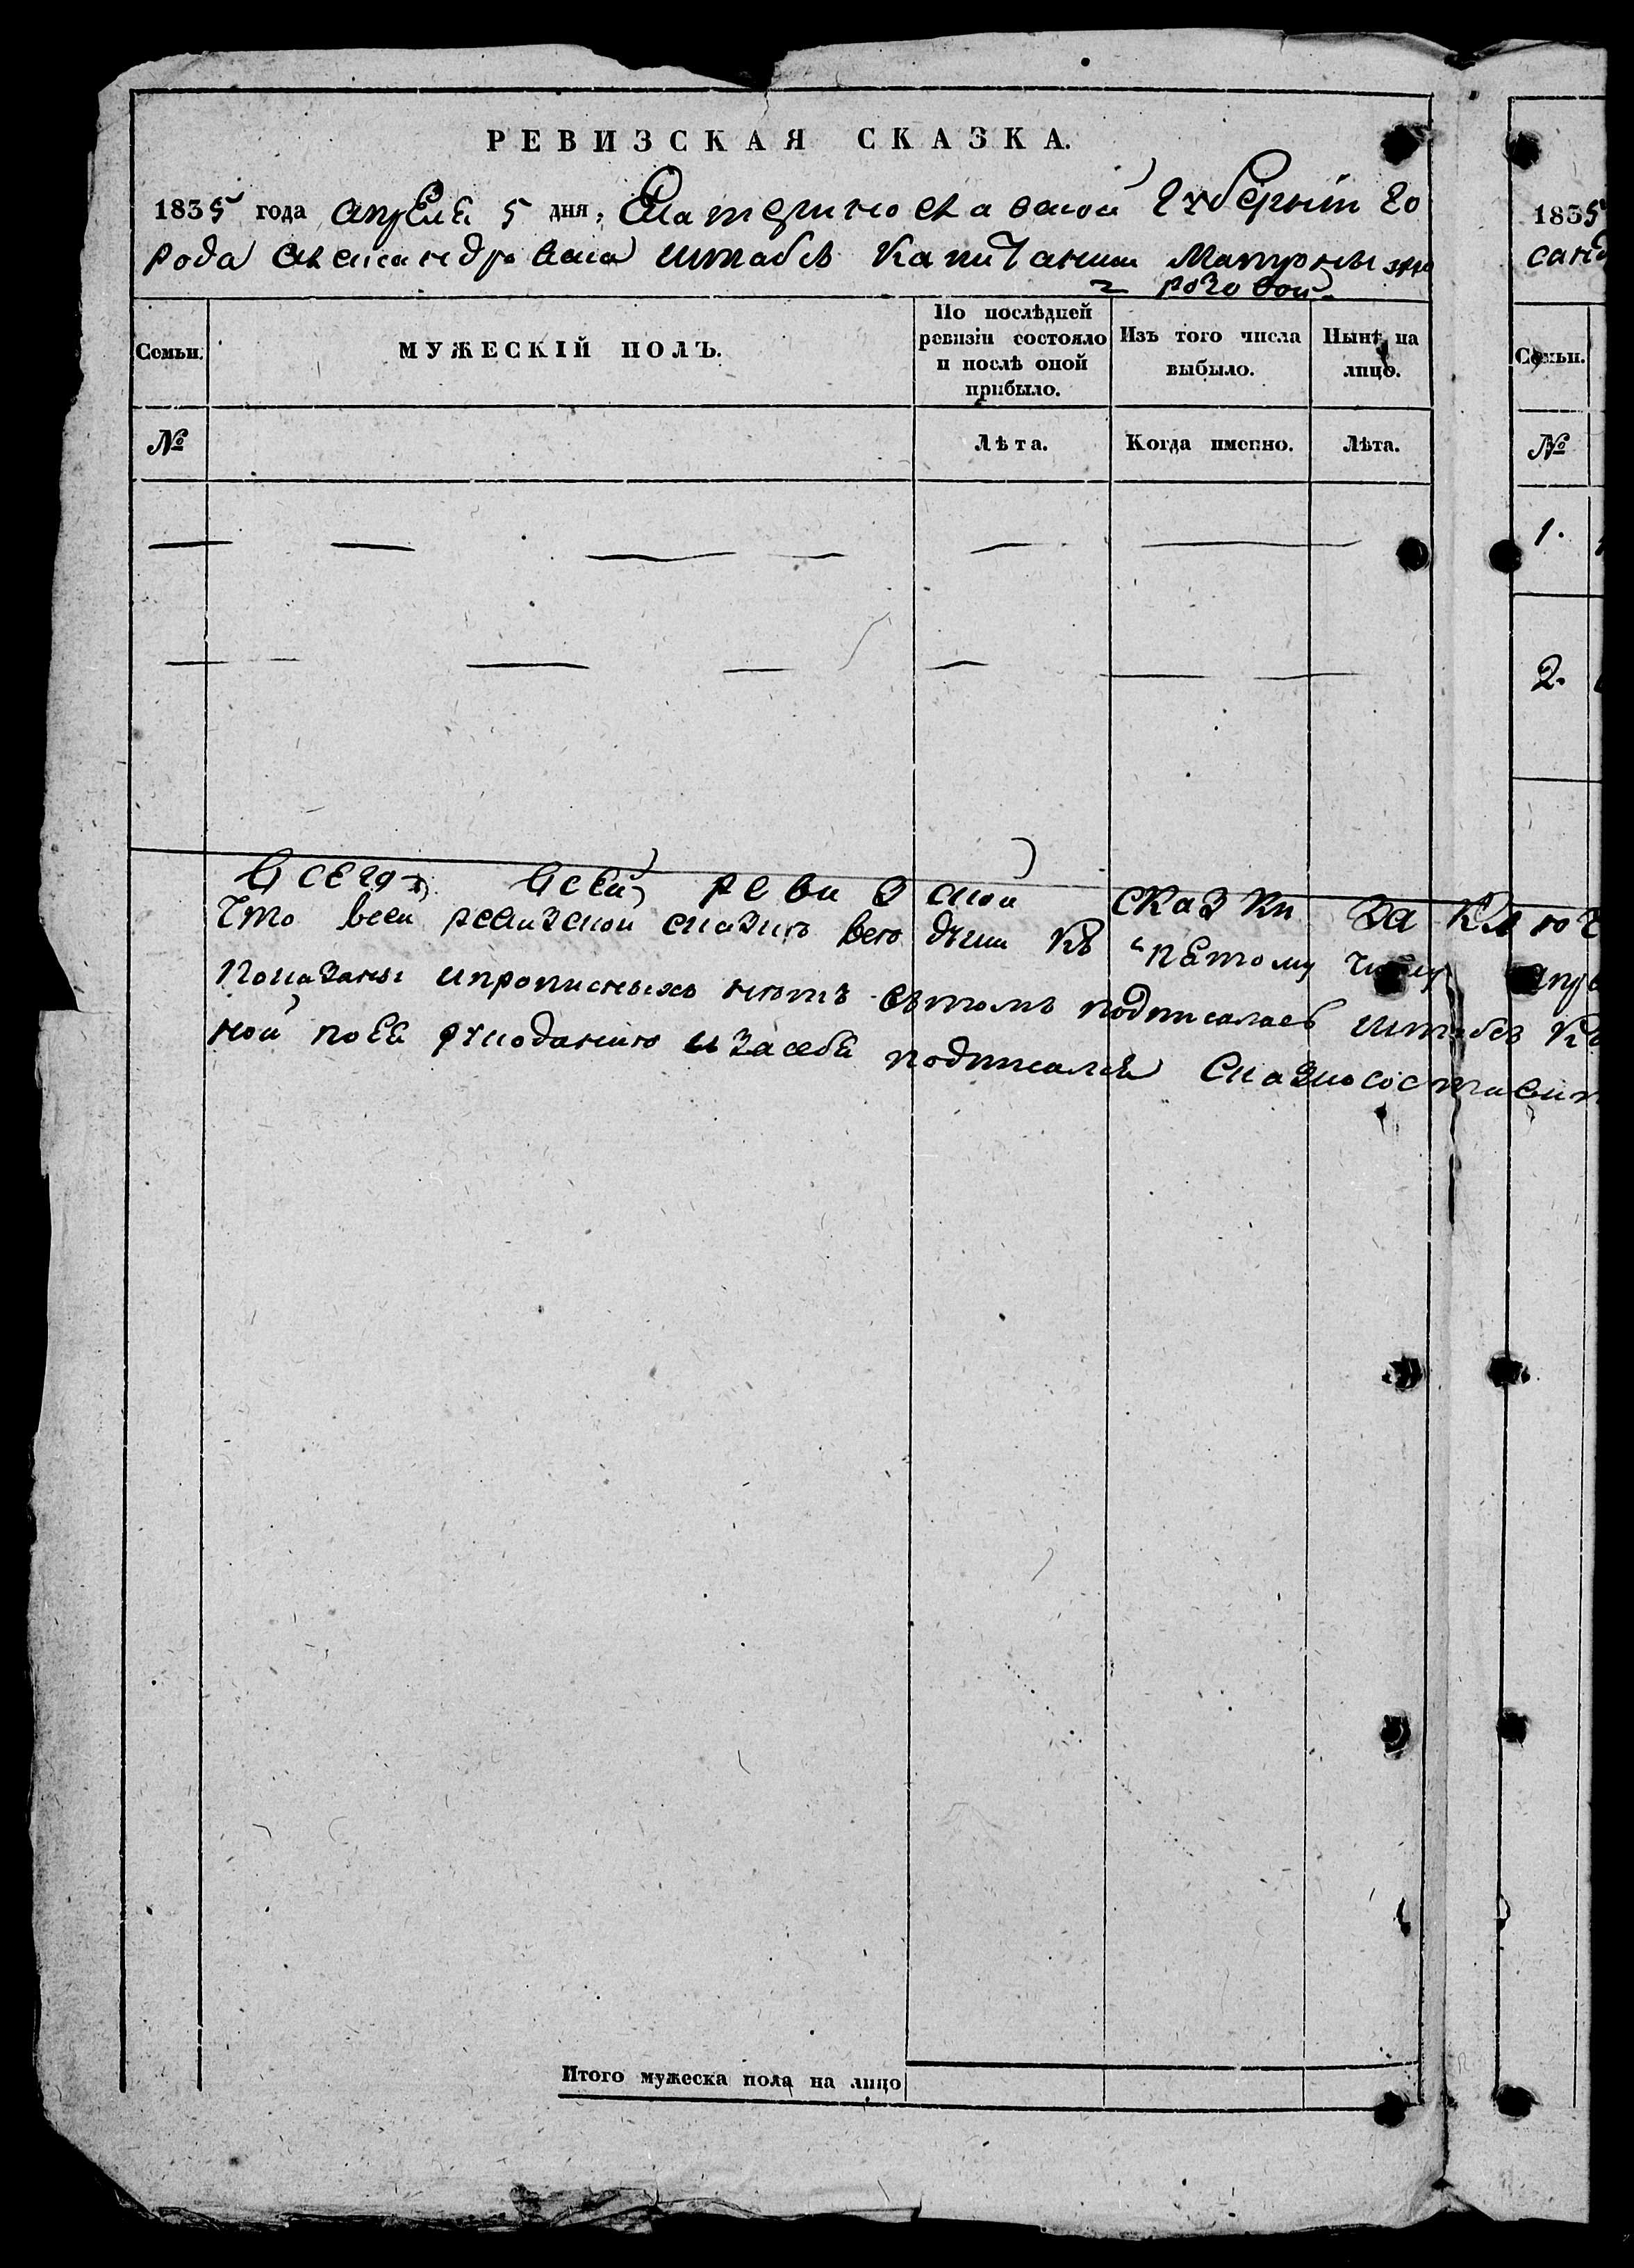 РЕВИЗСКАЯ СКАЗКА.
1835 года апреля 5 дня, Екатеринославской Губернии го
рода Александровска штабсъ Капитанши Матроны
роговой
Семьи. МУЖЕСКІЙ ПОЛЪ. По послѣдней ревизіи состояло и послѣ оной прибыло. Изъ того числа выбыло. Нынѣ на лицо.
№ Лѣта. Когда именно. Лѣта.
Всего Всей ревизской сказки заключ
Что всей ревизской сказкѣ всѣ души къ пятому числу апре
показаны и прописныхъ нѣтъ вътомъ подписалась штабсъ Ка
ной по ее рукоданию и засебя подписался Сказкосоставит
Итого мужеска пола на лицо
1835
санд
Семьи.
№
1.
2.